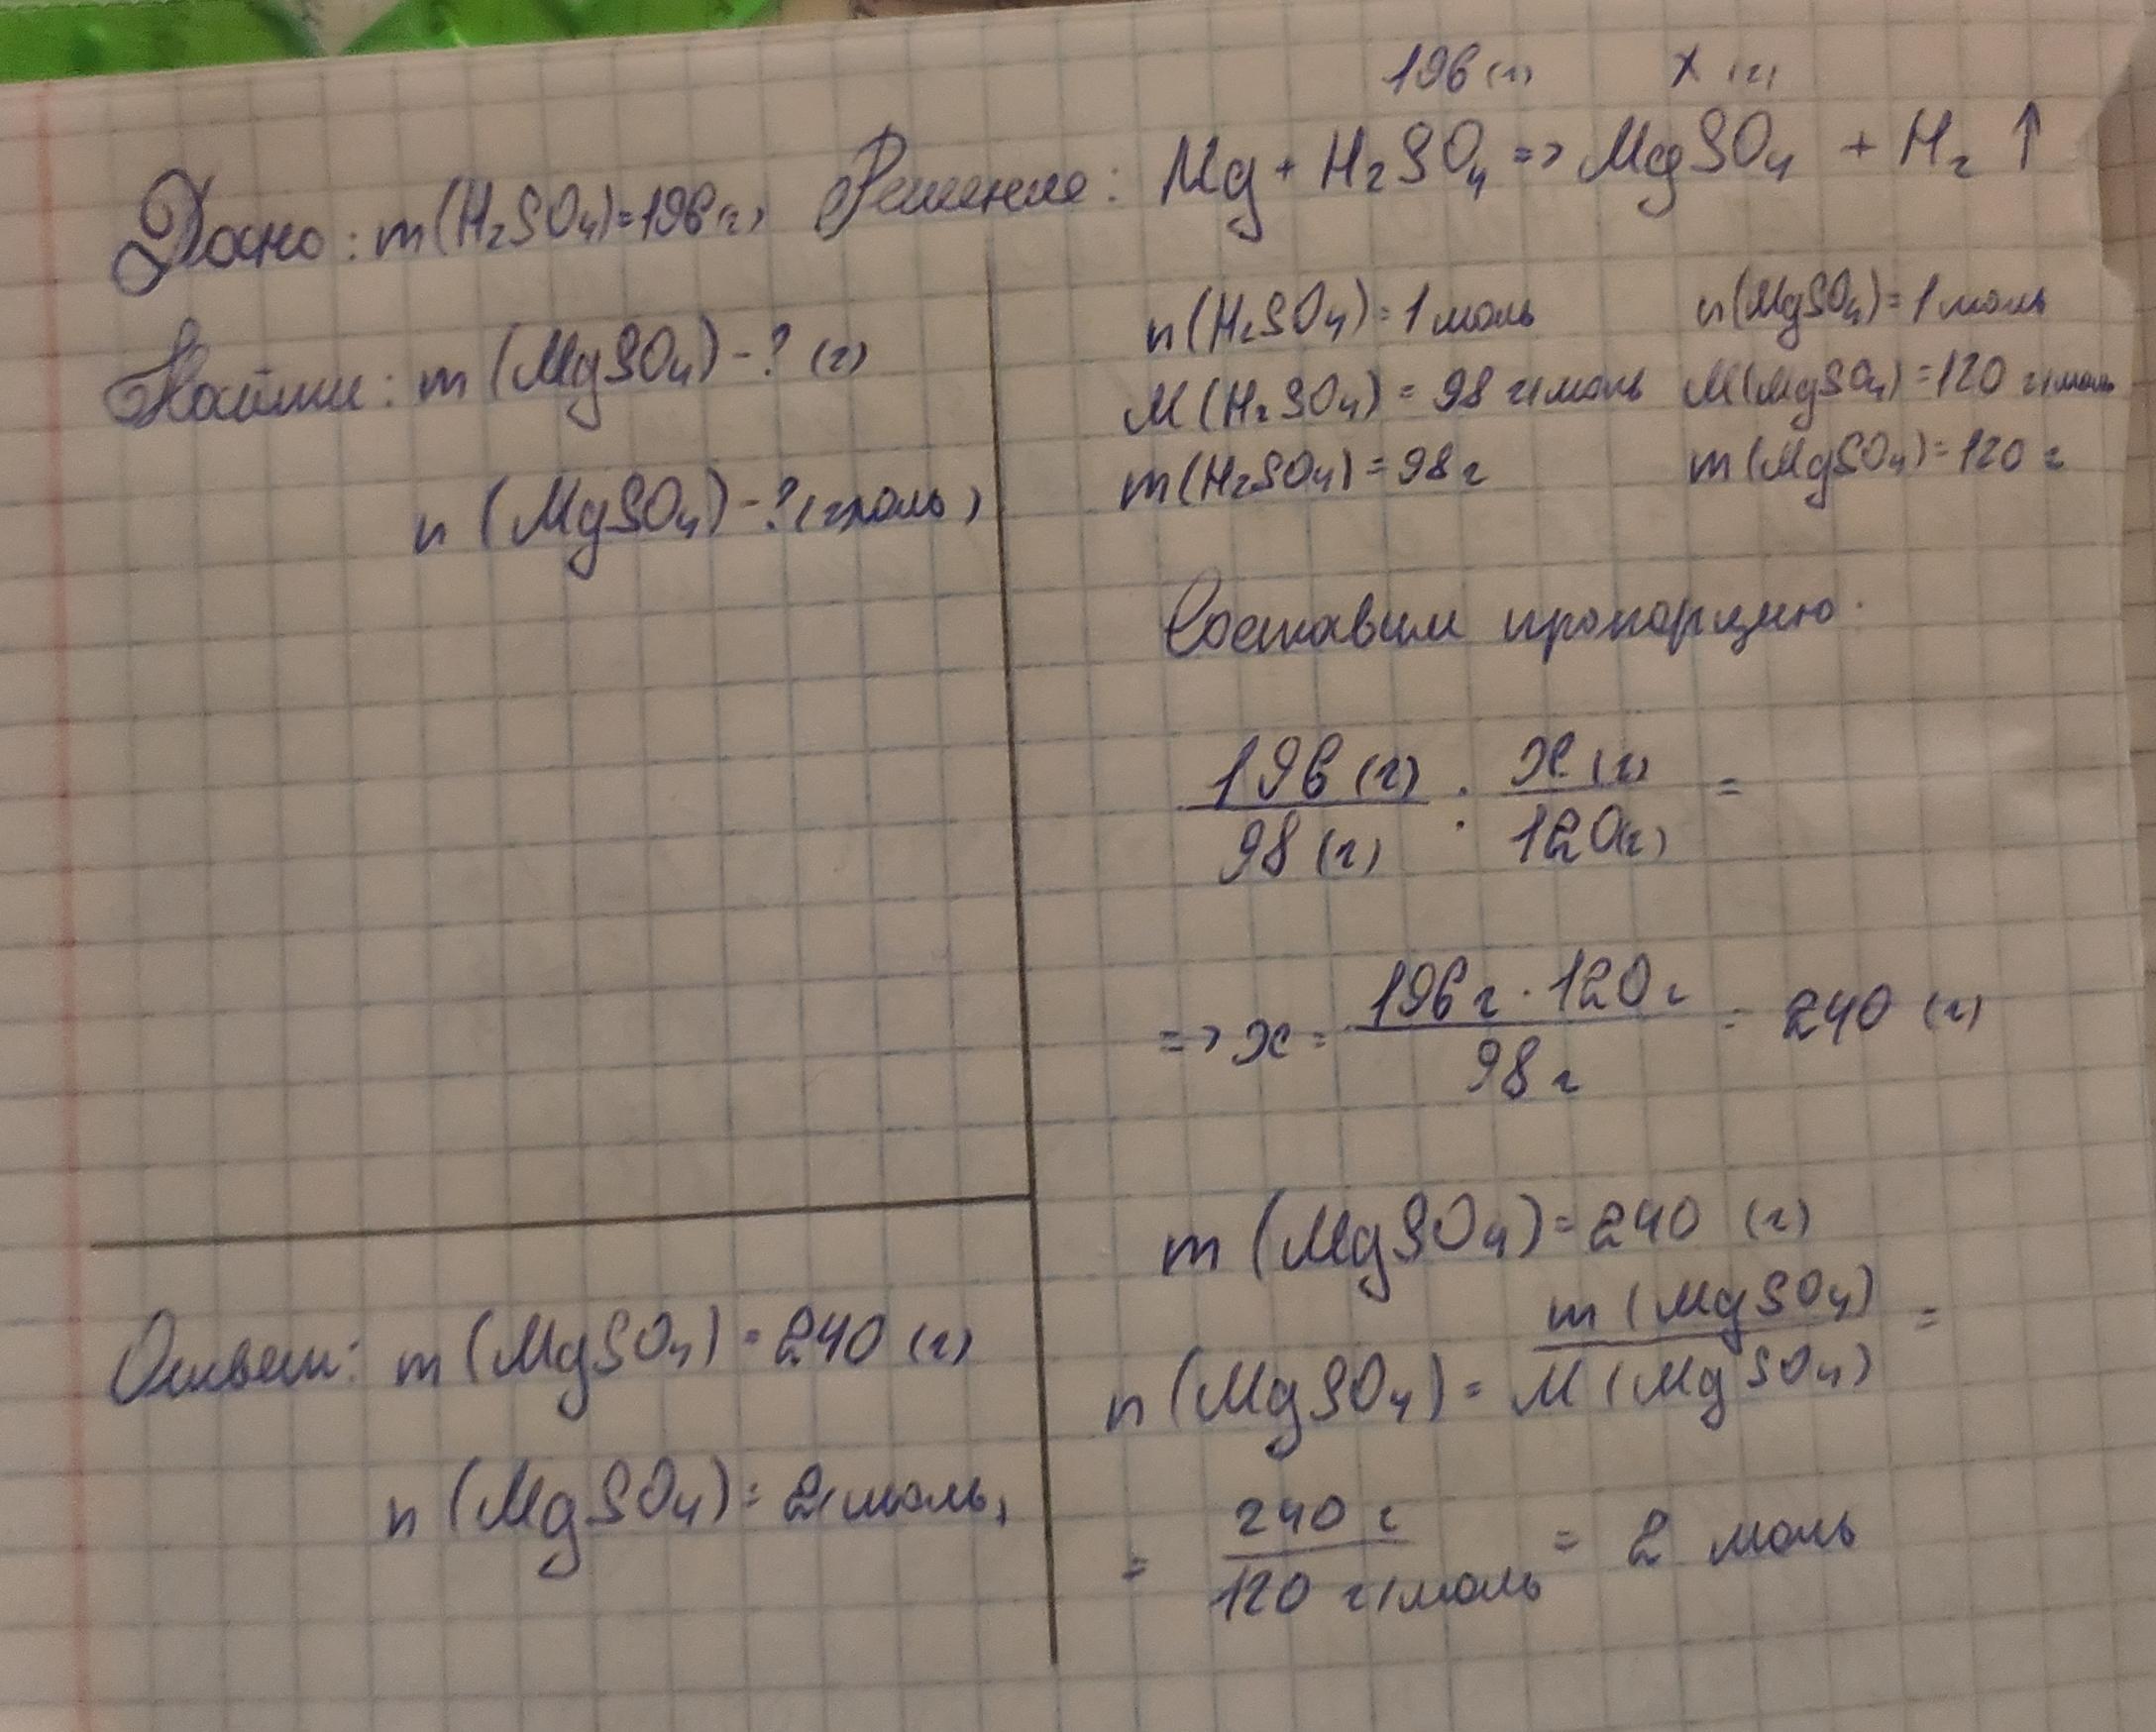 Дано: m(H₂SO₄)=196(г)
Найти: m(MgSO₄)-?(г)
n(MgSO₄)-?(моль)
Решение: Mg + H₂SO₄ => MgSO₄ + H₂ ↑
196(г) x(г)
n(H₂SO₄)=1 моль n(MgSO₄)=1 моль
M(H₂SO₄)=98 г/моль M(MgSO₄)=120 г/моль
m(H₂SO₄)=98г m(MgSO₄)=120г
Составим пропорцию:
196(г)/98(г) : x(г)/120(г) =
=> x = 196г·120г/98г = 240(г)
m(MgSO₄)=240(г)
n(MgSO₄)= m(MgSO₄)/M(MgSO₄) =
= 240г/120 г/моль = 2 моль
Ответ: m(MgSO₄)=240(г)
n(MgSO₄)=2(моль)